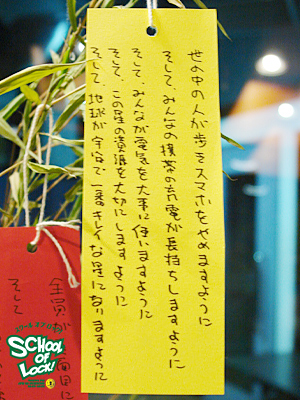 世の中の人が歩きスマホをやめますように
そして、みんなの携帯の充電が長持ちしますように
そして、みんなが電気を大事に使いますように
そして、この星の資源を大切にしますように
そして、地球が宇宙で一番キレイな星になりますように
全員が
そして
SCHOOL
OF
LOCK!